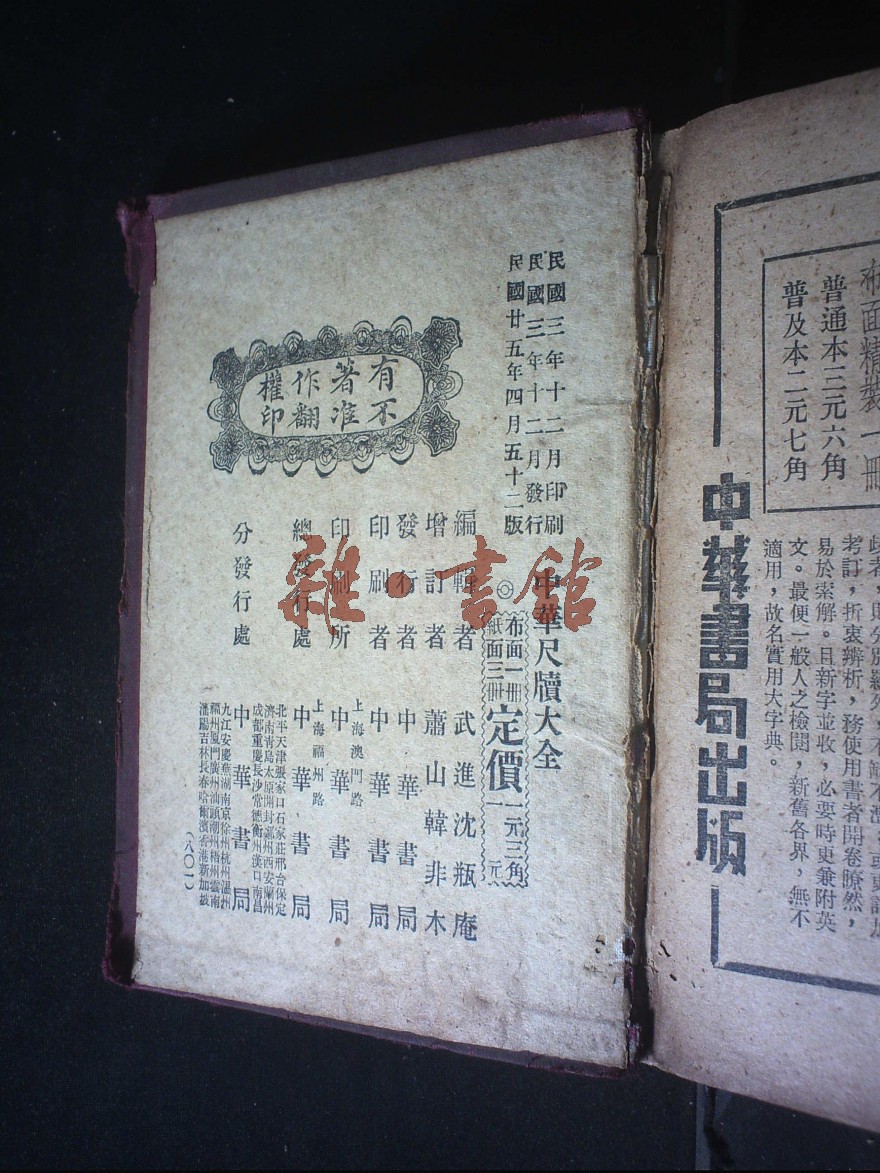 布面精裝一冊
普通本三元六角
普及本二元七角
考訂，折衷辨析，務使用書者開卷瞭然，
易於索解。且新字並收，必要時更兼附英
文。最便一般人之檢閱，新舊各界，無不
適用，故名實用大字典。
中華書局出版
民國三年十二月印刷
民國三年十二月發行
民國廿五年四月五十二版
有不
著准
作翻
權印
中華尺牘大全
◎
布面一冊
紙面三冊
定價
一元三角
一元
編輯者 武進沈瓶庵
增訂者 蕭山韓非木
發行者 中華書局
印刷者 中華書局
印刷所 上海澳門路 中華書局
總發行處 上海福州路 中華書局
分發行處 中華書局
北平天津張家口石家莊邢台保定
濟南青島太原開封鄭州西安蘭州
成都重慶長沙常德衡州漢口南昌
九江安慶蕪湖南京徐州杭州溫州
福州廈門廣州汕頭潮州梧州雲南
瀋陽吉林長春哈爾濱香港新加坡
（八〇一）
雜·書館